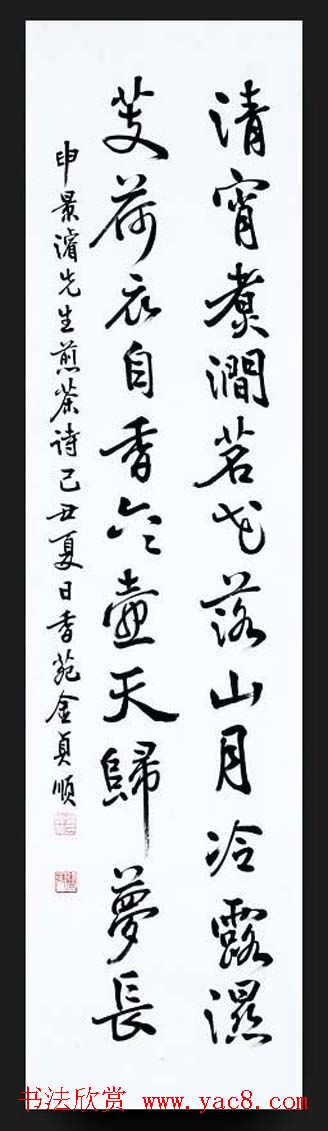 清宵煮澗茗花落山月冷露濕
芰荷衣自香壺天歸夢長
申景濬先生煎茶詩己丑夏日香苑金貞順
书法欣赏 www.yac8.com